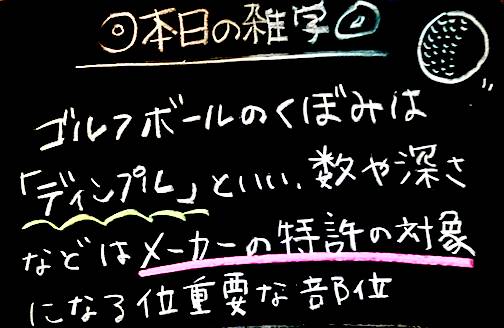 ◎本日の雑字◎
ゴルフボールのくぼみは
「ディンプル」といい、数や深さ
などはメーカーの特許の対象
になる位重要な部位